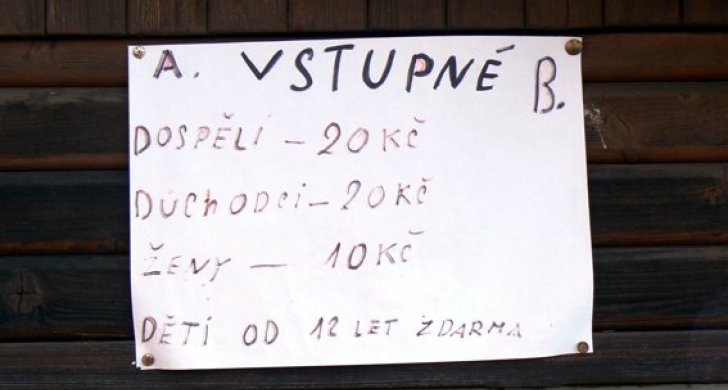 A. VSTUPNÉ B.
DOSPĚLÍ – 20 KČ
DŮCHODCI – 20 KČ
ŽENY — 10 KČ
DĚTÍ OD 12 LET ZDARMA